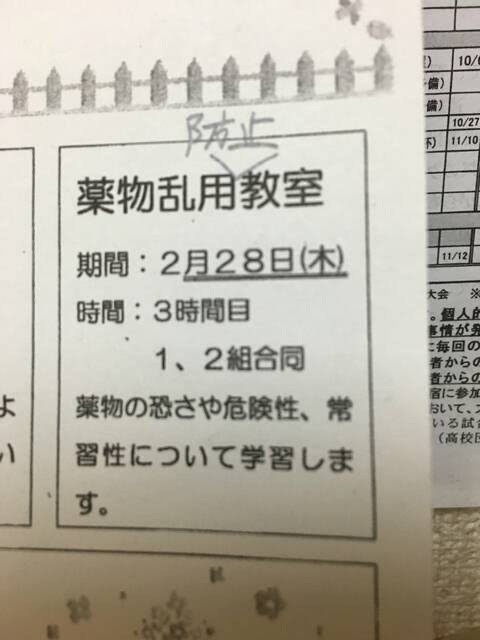 防止
薬物乱用教室
期間：２月２８日(木)
時間：３時間目
１、２組合同
薬物の恐さや危険性、常
習性について学習しま
す。
よ
い
備)
備)
10/27
杯)
11/10
11/12
大会 ※
。個人的
事情が発
に毎回の
者からの
者からの
宿に参加
おいて、
いる試合
（高校団